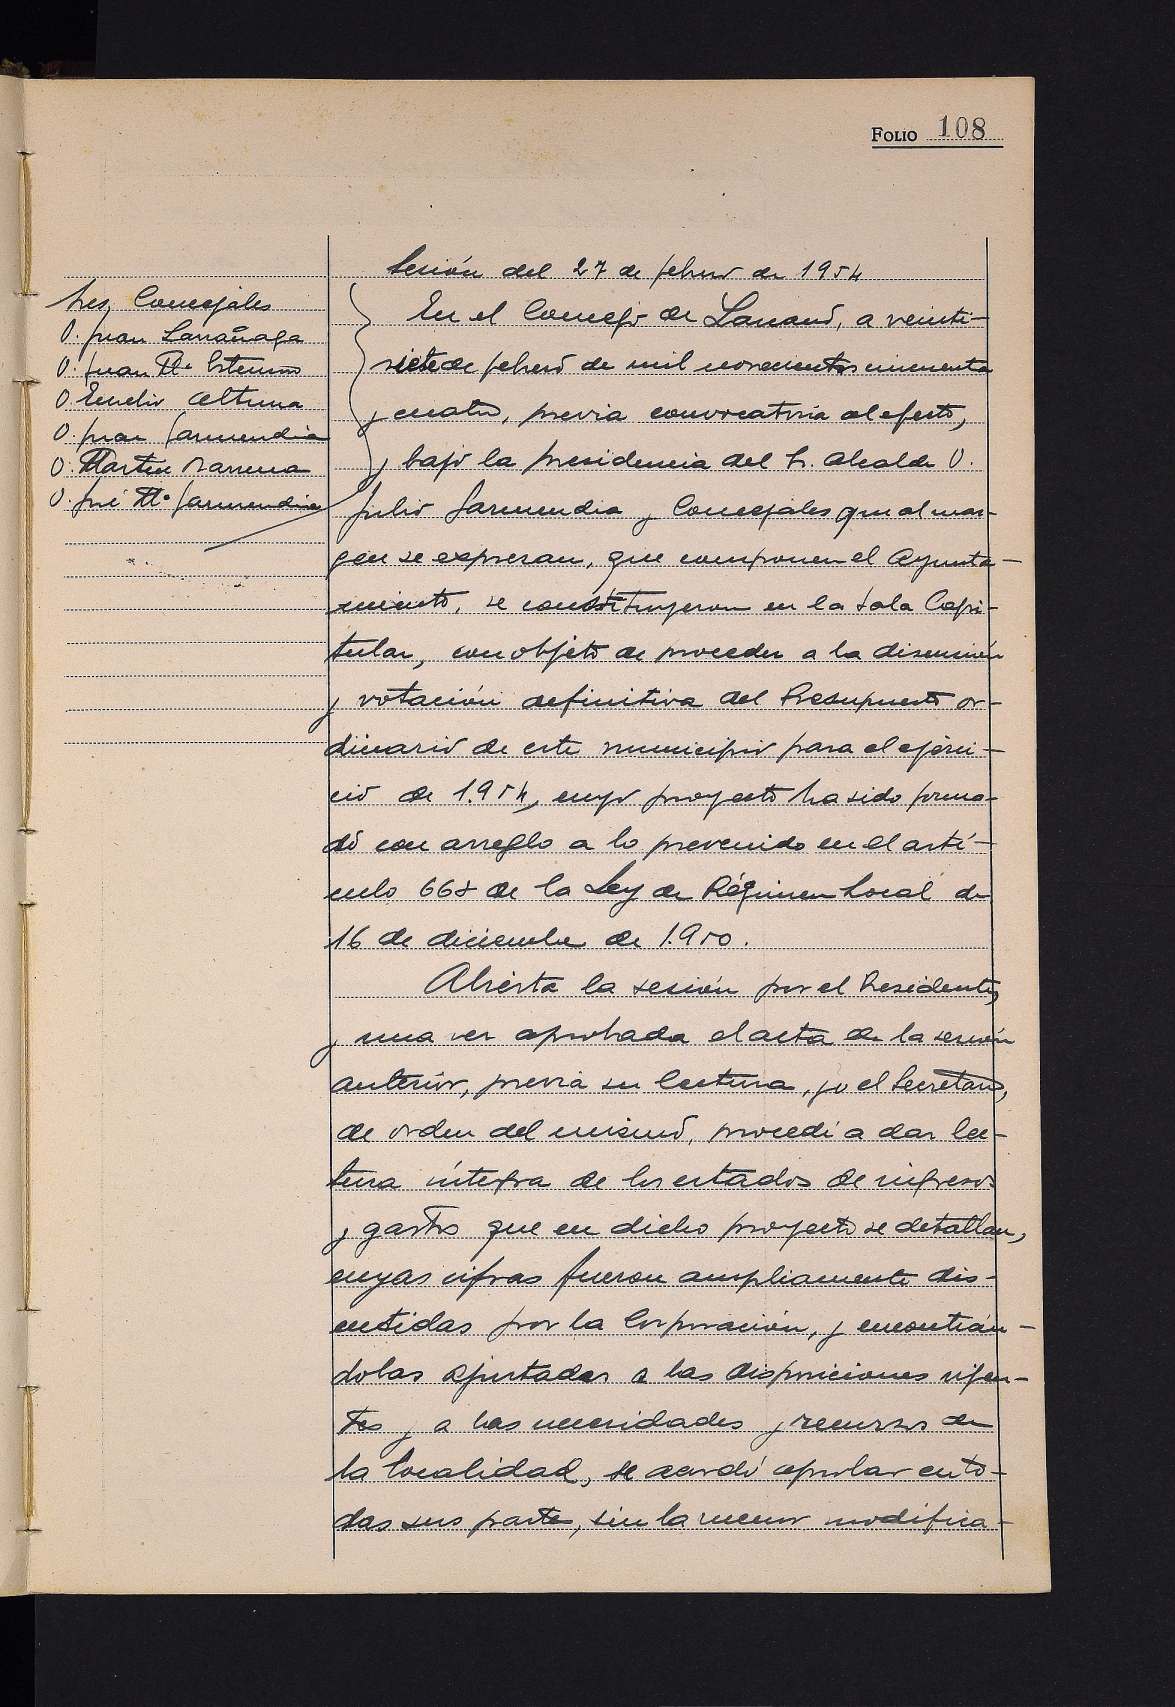 FOLIO 108
Sesión del 27 de febrero de 1954
Sres. Concejales
D. Juan Larrañaga
D. Juan Mª
D. Emilio Altuna
D. Juan Garmendia
D. Martin Barrena
D. José Mª Garmendia
En el Concejo de Larraul, a veinti-
siete de febrero de mil novecientos cincuenta
y cuatro, previa convocatoria al efecto,
y bajo la presidencia del Sr. Alcalde D.
Julio Garmendia y Concejales que al mar-
gen se expresan, que componen el Ayunta-
miento, se constituyeron en la Sala Capi-
tular, con objeto de proceder a la discusión
y votación definitiva del Presupuesto or-
dinario de este municipio para el ejerci-
cio de 1.954, cuyo proyecto ha sido forma-
do con arreglo a lo prevenido en el artí-
culo 668 de la Ley de Régimen Local de
16 de diciembre de 1.950.
Abierta la sesión por el Presidente,
y una vez aprobada el acta de la sesión
anterior, previa su lectura, yo el Secretario,
de orden del mismo, procedí a dar lec-
tura íntegra de los estados de ingresos
y gastos que en dicho proyecto se detallan,
cuyas cifras fueron ampliamente dis-
cutidas por la Corporación, y encontrán-
dolas ajustadas a las disposiciones vigen-
tes y a las necesidades y recursos de
la localidad, se acordó aprobar en to-
das sus parte, sin la menor modifica-